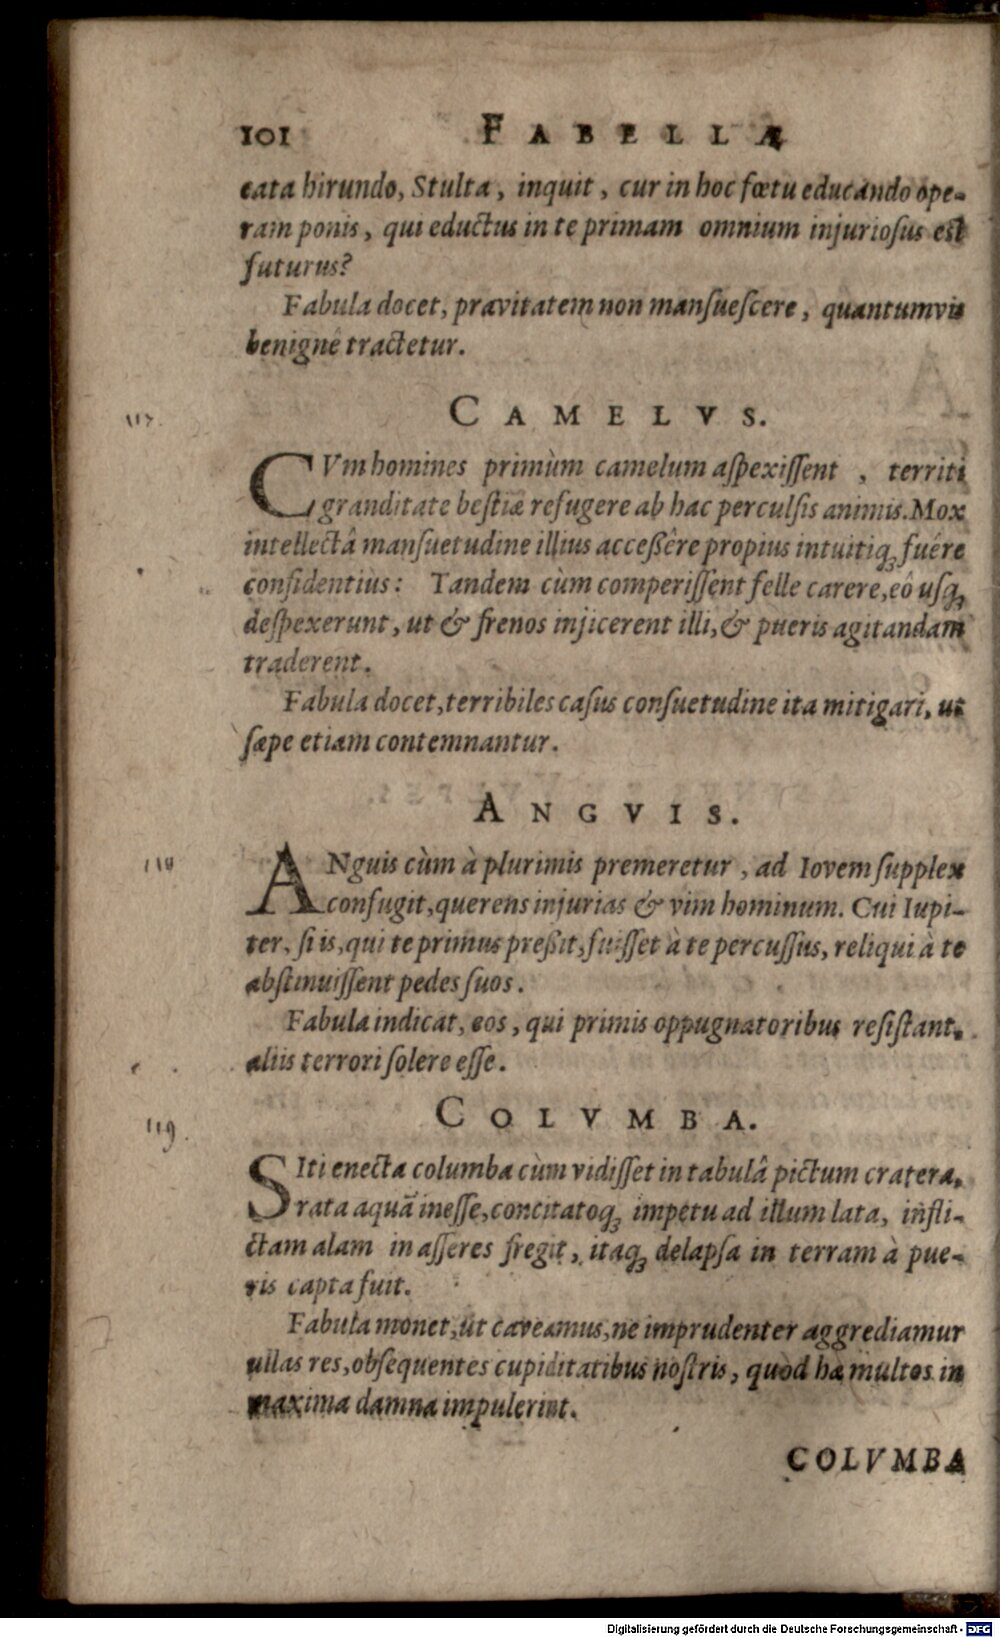 101 FABELLÆ
cata hirundo, Stulta, inquit, cur in hoc fœtu educando ope-
ram ponis, qui eductus in te primam omnium injuriosus est
futurus?
Fabula docet, pravitatem non mansuescere, quantumvis
benignè tractetur.
117.
CAMELVS.
CVm homines primùm camelum aspexissent, territi
granditate bestiæ refugere ab hac perculsis animis. Mox
intellectâ mansuetudine illius acceßêre propius intuitiq́; fuére
confidentiùs: Tandem cùm comperissent felle carere, eô usq́;
despexerunt, ut & frenos injicerent illi, & pueris agitandam
traderent.
Fabula docet, terribiles casus consuetudine ita mitigari, ut
sæpe etiam contemnantur.
ANGVIS.
118
ANguis cùm à plurimis premeretur, ad Iovem supplex
confugit, querens injurias & vim hominum. Cui Iupi-
ter, si is, qui te primus preßit, fuisset à te percussus, reliqui à te
abstinuissent pedes suos.
Fabula indicat, eos, qui primis oppugnatoribus resistant,
aliis terrori solere esse.
COLVMBA.
119.
SIti enecta columba cùm vidisset in tabulâ pictum cratera,
rata aquã inesse, concitatoq; impetu ad illum lata, infli-
ctam alam in asseres fregit, itaq; delapsa in terram à pue-
ris capta fuit.
Fabula monet, ut caveamus, ne imprudenter aggrediamur
ullas res, obsequentes cupiditatibus nostris, quòd hæ multos in
maxima damna impulerint.
COLVMBA
Digitalisierung gefördert durch die Deutsche Forschungsgemeinschaft - DFG